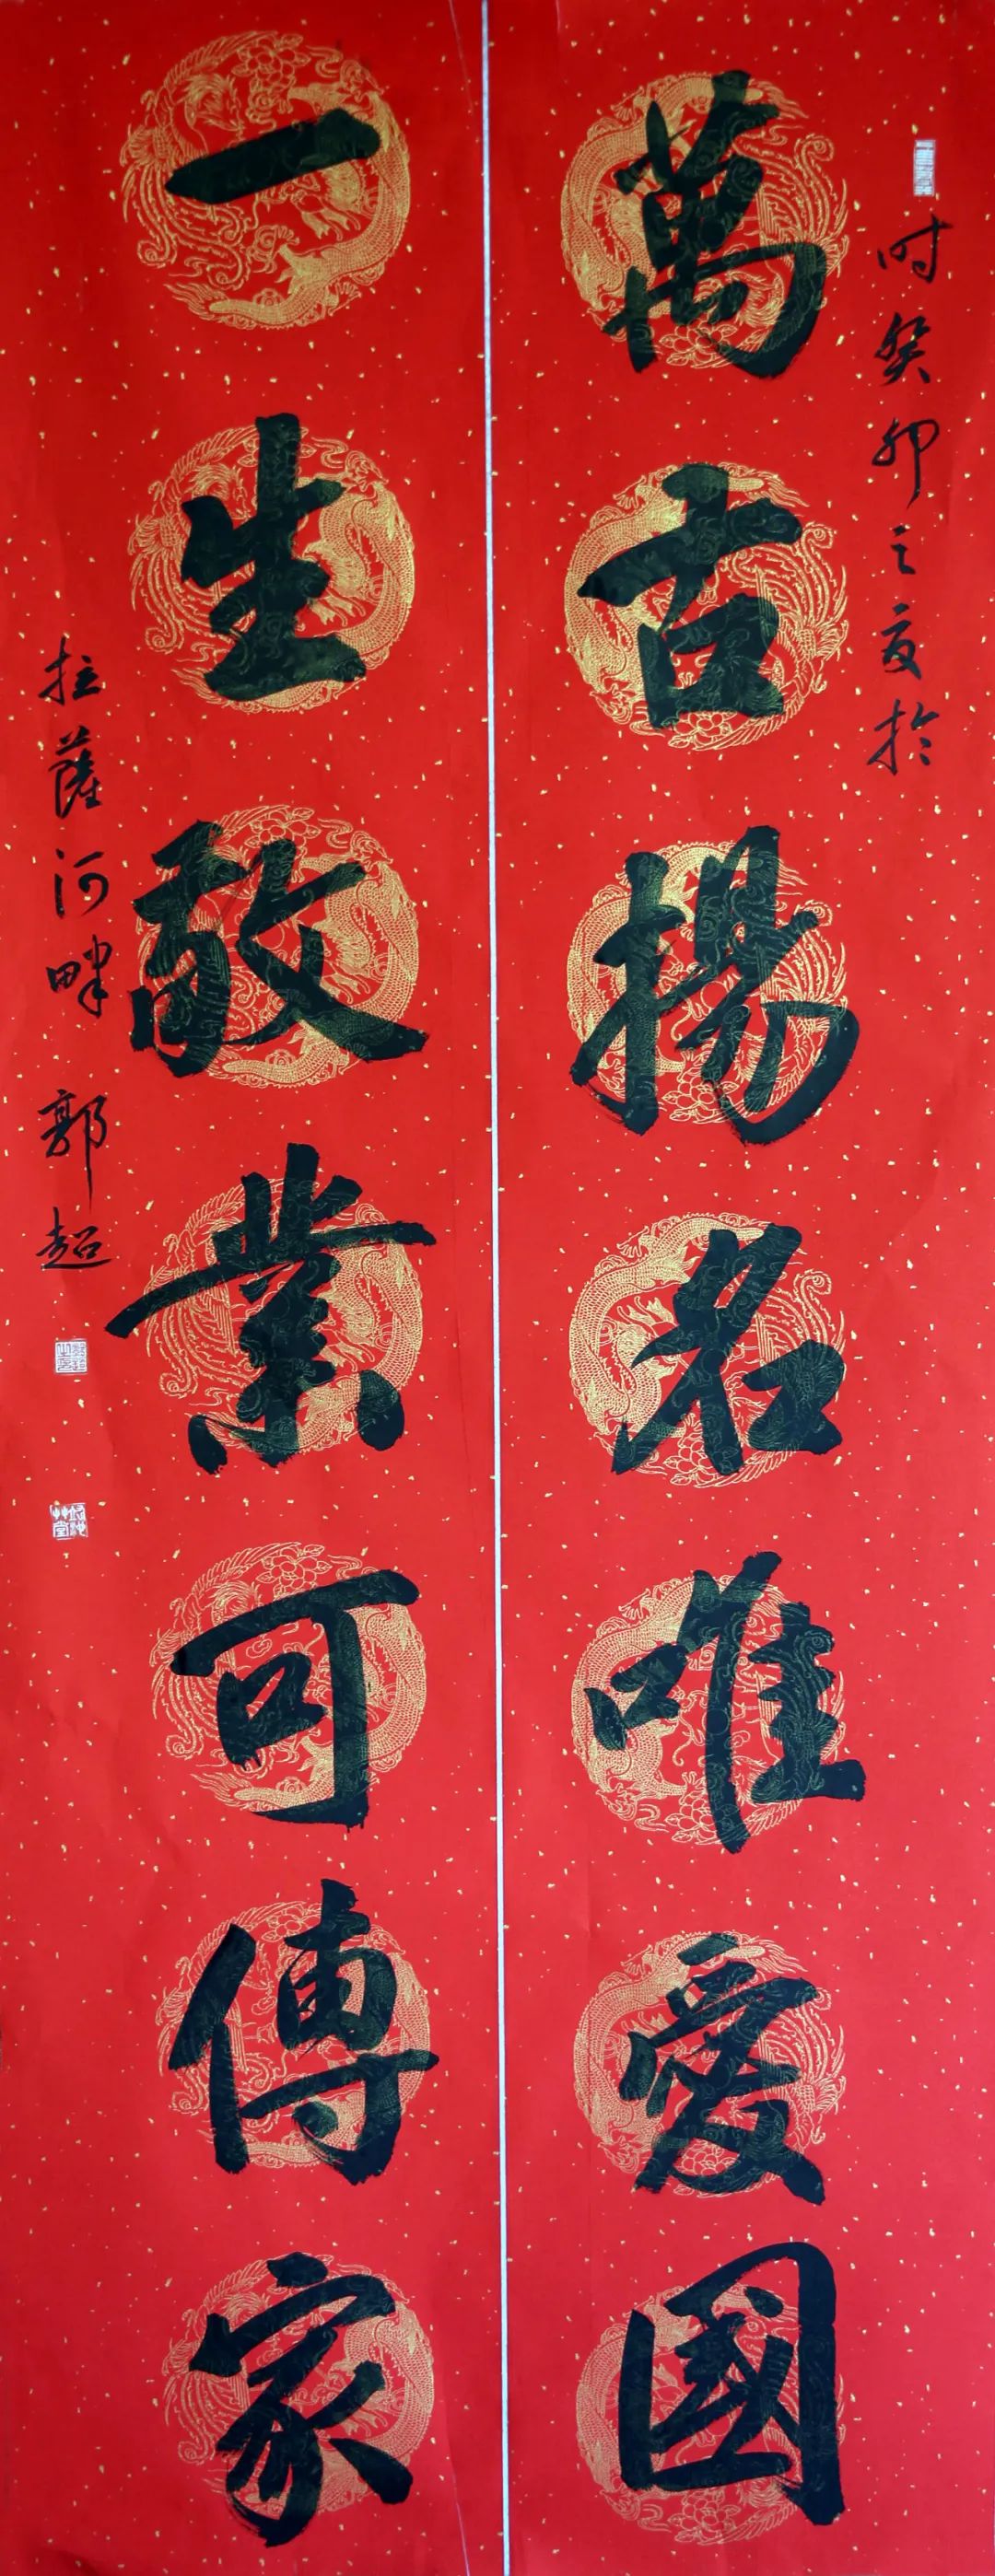 时癸卯之夏於
萬古揚名唯愛國
一生敬業可傳家
拉薩河畔 郭超